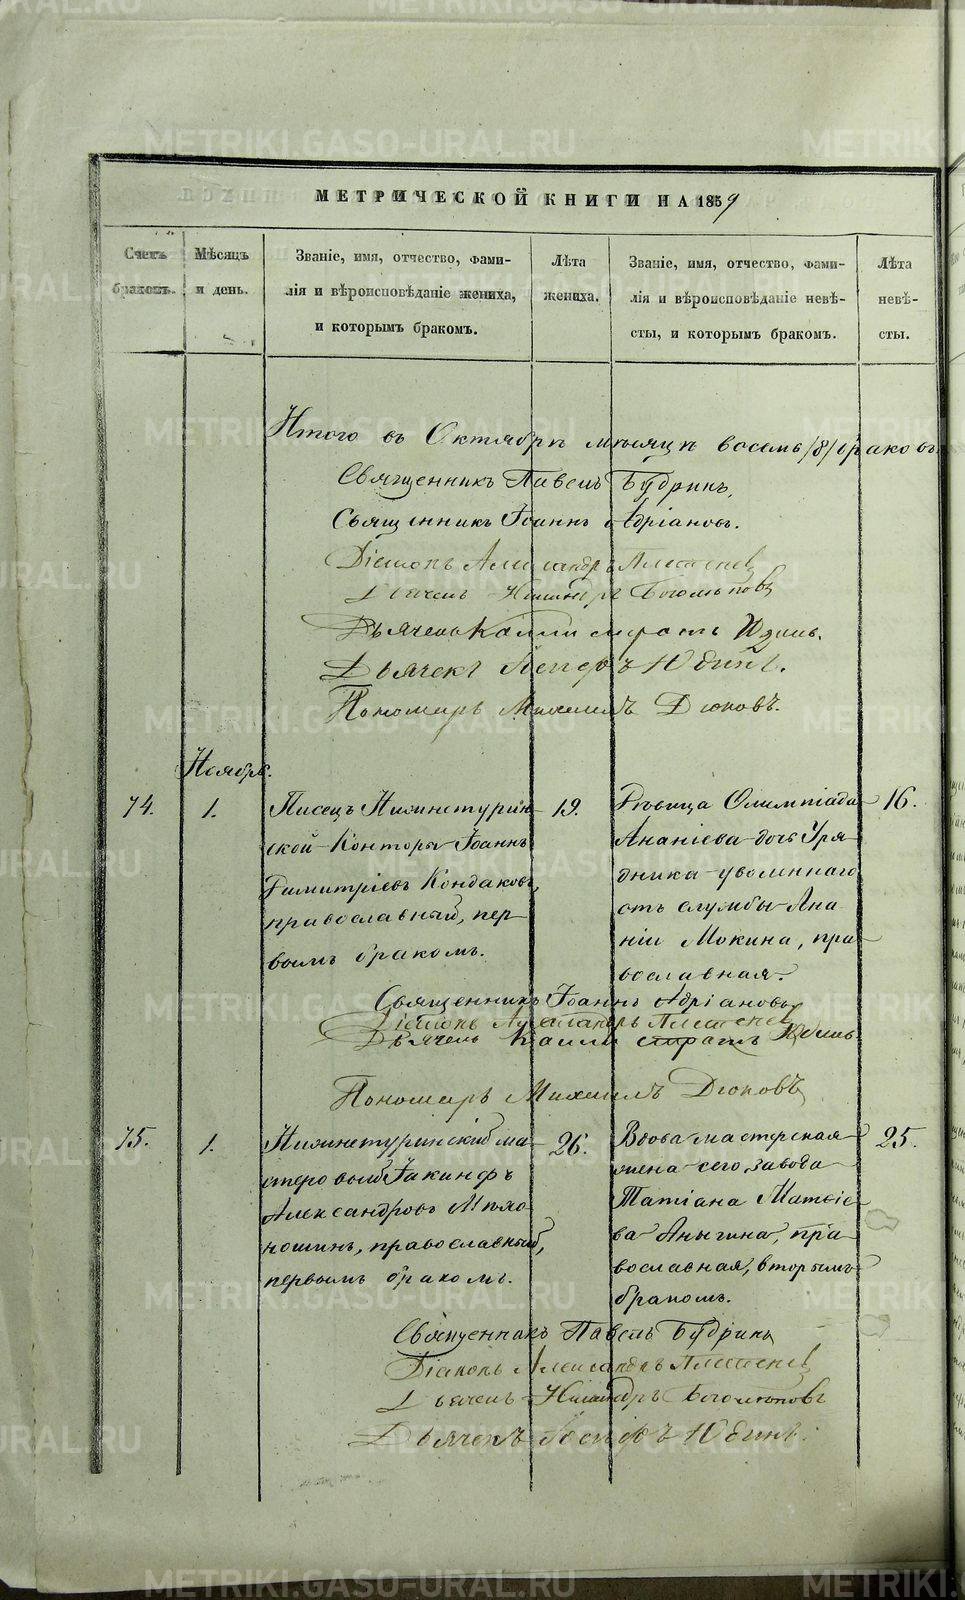 МЕТРИЧЕСКОЙ КНИГИ НА 1859
Счетъ браковъ.
Мѣсяцъ и день.
Званіе, имя, отчество, фами-
лія и вѣроисповѣданіе жениха,
и которымъ бракомъ.
Лѣта жениха.
Званіе, имя, отчество, фами-
лія и вѣроисповѣданіе невѣ-
сты, и которымъ бракомъ.
Лѣта невѣ-
сты.
Итого въ Октябрѣ мѣсяцѣ восемь /8/ браковъ.
Священникъ Павелъ Будринъ.
Священникъ Іоаннъ Адріановъ.
Діаконъ Александръ
Дьячекъ Никандръ Богомоловъ
Дьячекъ Каллистратъ Юдинъ.
Дьячекъ Іосифъ Юдинъ.
Пономарь Михаилъ Дюковъ.
Ноябрь.
74.
1.
Писецъ Нижнетурин-
ской Конторы Іоаннъ
Димитріевъ Кондаковъ,
православный, пер-
вымъ бракомъ.
19.
Дѣвица Олимпіада
Ананіева дочь Уря-
дника уволеннаго
отъ службы Ана-
ніи Мокина, пра-
вославная.
16.
Священникъ Іоаннъ Адріановъ
Діаконъ Александръ
Дьячекъ Каллистратъ Юдинъ.
Пономарь Михаилъ Дюковъ
75.
1.
Нижнетуринскій ма-
стеровый Іакинфъ
Александровъ
православный,
первымъ бракомъ.
26.
Вдова мастерская
жена сего завода
Татіана Матвіе-
ва Аныгина, пра-
вославная, вторымъ
бракомъ.
25.
Священникъ Павелъ Будринъ
Діаконъ Александръ
Дьячекъ Никандръ Богомоловъ
Дьячекъ Іосифъ Юдинъ.
METRIKI.GASO-URAL.RU